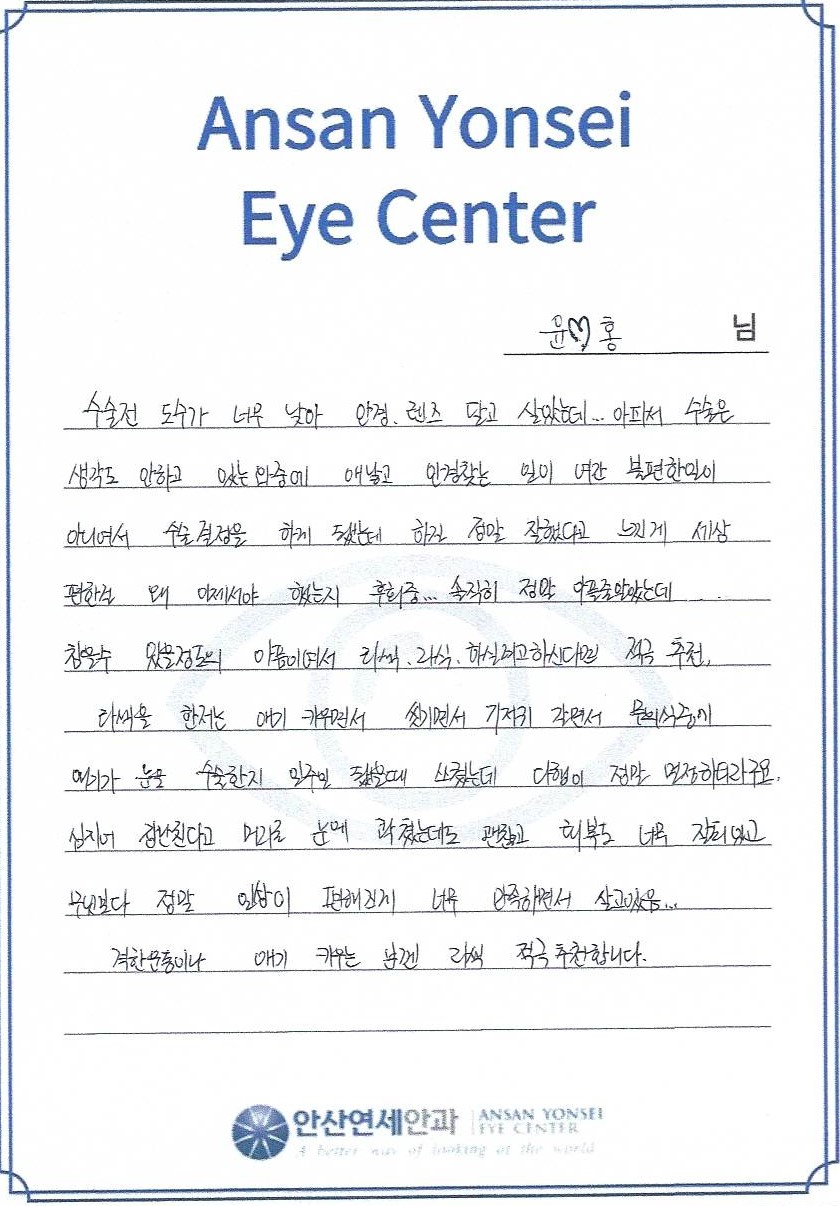 Ansan Yonsei
Eye Center
윤♡홍 님
수술전 도수가 너무 낮아 안경. 렌즈 달고 살았는데... 아파서 수술은
생각도 안하고 있는 와중에 애낳고 안경찾는 일이 여간 불편한일이
아니여서 수술결정을 하게 됐는데 하길 정말 잘했다고 느낀게 세상
편한걸 왜 이제서야 했는지 후회중... 솔직히 정말 아플줄알았는데 ...
참을수 있을정도의 아픔이여서 라섹. 라식. 하실려고하신다면 적극 추천.
라섹을 한저는 애기 키우면서 씻기면서 기저귀 갈면서 무의식중에
애기가 눈을 수술한지 일주일 됐을때 쳤는데 다행이 정말 멀쩡하더라구요.
심지어 장난친다고 머리로 눈에 콱쳤는데도 괜찮고 회복도 너무 잘되있고
무엇보다 정말 일상이 편해진게 너무 만족하면서 살고있음...
격한운동이나 애기 키우는 분껜 라섹 적극추천합니다.
안산연세안과 ANSAN YONSEI
EYE CENTER
A better way of looking at the world